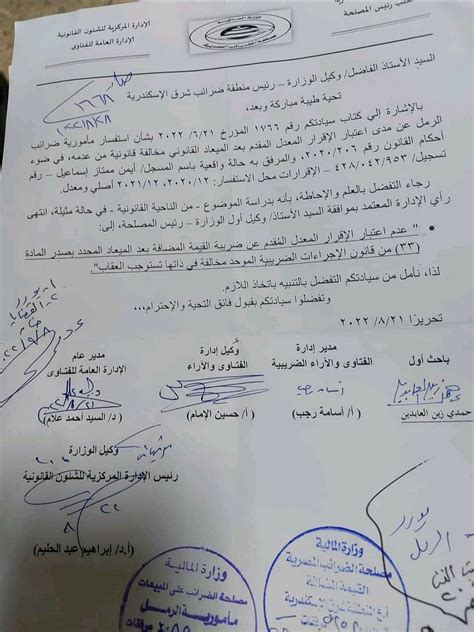 مكتب رئيس المصلحة
الإدارة المركزية للشئون القانونية
الإدارة العامة للفتاوى
السيد الأستاذ الفاضل/ وكيل الوزارة – رئيس منطقة ضرائب شرق الإسكندرية
تحية طيبة مباركة وبعد،
بالإشارة إلى كتاب سيادتكم رقم ١٧٦٦ المؤرخ ٢٠٢٢/٦/٢١ بشأن استفسار مأمورية ضرائب
الرمل عن مدى اعتبار الإقرار المعدل المقدم بعد الميعاد القانوني مخالفة قانونية من عدمه، في ضوء
أحكام القانون رقم ٢٠٢٠/٢٠٦، والمرفق به حالة واقعية باسم المسجل/ أيمن ممتاز إسماعيل – رقم
تسجيل/ ٤٢٨/٠٤٢/٩٥٣ – الإقرارات محل الاستفسار: ٢٠٢٠/١٢، ٢٠٢١/١٢ أصلي ومعدل.
رجاء التفضل بالعلم والإحاطة، بأنه بدراسة الموضوع - من الناحية القانونية - في حالة مثيلة، انتهى
رأي الإدارة المعتمد بموافقة السيد الأستاذ/ وكيل أول الوزارة – رئيس المصلحة، إلى:
" عدم اعتبار الإقرار المعدل المقدم عن ضريبة القيمة المضافة بعد الميعاد المحدد بصدر المادة
(٣٣) من قانون الإجراءات الضريبية الموحد مخالفة في ذاتها تستوجب العقاب".
لذا، نأمل من سيادتكم التفضل بالتنبيه باتخاذ اللازم.
وتفضلوا سيادتكم بقبول فائق التحية والإحترام...
تحريرًا ٢٠٢٢/٨/٢١
باحث أول
مدير إدارة
الفتاوى والآراء الضريبية
وكيل إدارة
الفتاوى والآراء
مدير عام
الإدارة العامة للفتاوى
حمدي زين العابدين
(أ/ أسامة رجب)
(أ/ حسين الإمام)
(د/ السيد أحمد علام)
وكيل الوزارة
رئيس الإدارة المركزية للشئون القانونية
(أ.د/ إبراهيم عبد الحليم)
وزارة المالية
مصلحة الضرائب المصرية
القيمة المضافة
وزارة المالية
مصلحة الضرائب على المبيعات
مأمورية الرمل